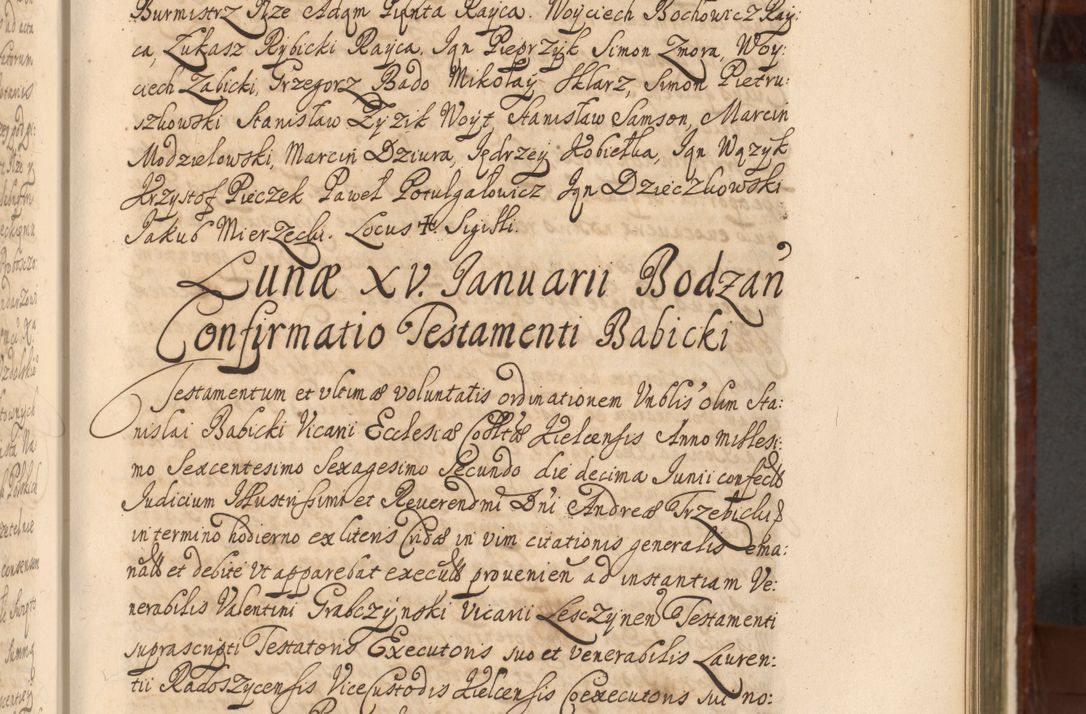 Burmistrz Ilze Adam Giunta Rayca. Woyciech Bochowicz Ray
ca, Łukasz Rybicki Rayca, Jan Pieprzyk Simon Zmora, Woy:
ciech Zabicki, Grzegorz Bado Mikołay Sklarz, Simon Pietru:
szkowski Stanisław Zyzik Woyt Stanisław Samson, Marcin
Modzielowski, Marcin Dziura, Jędrzey Kobiełka, Jan Wązyk
Krzystof Pieczek Paweł Potulgałowicz Jan Dzieczkowski
Jakub Mierzecki. Locus Sigilli.
Lunæ XV. Ianuarii Bodzan
Confirmatio Testamenti Babicki
Testamentum et ultimæ voluntatis ordinationem Vnblis olim Sta:
nislai Babicki Vicarii Ecclesiæ Kielcensis Anno millesi:
mo Sexcentesimo Sexagesimo Secundo die decima Junii
Judicium Illustrissimi et Reverendmi Dni Andreæ Trzebicki
in termino hodierno ex literis in vim citationis generalis ema:
et debite ut apparebat provenien ad instantiam Ve:
nerabilis Valentini Grabczynski Vicarii Lesczynen Testamenti
suprascripti Testatoris Executoris suo et venerabilis Lauren:
tii Radoszycensis ViceCustodis Kielcensis Coexecutoris sui no: